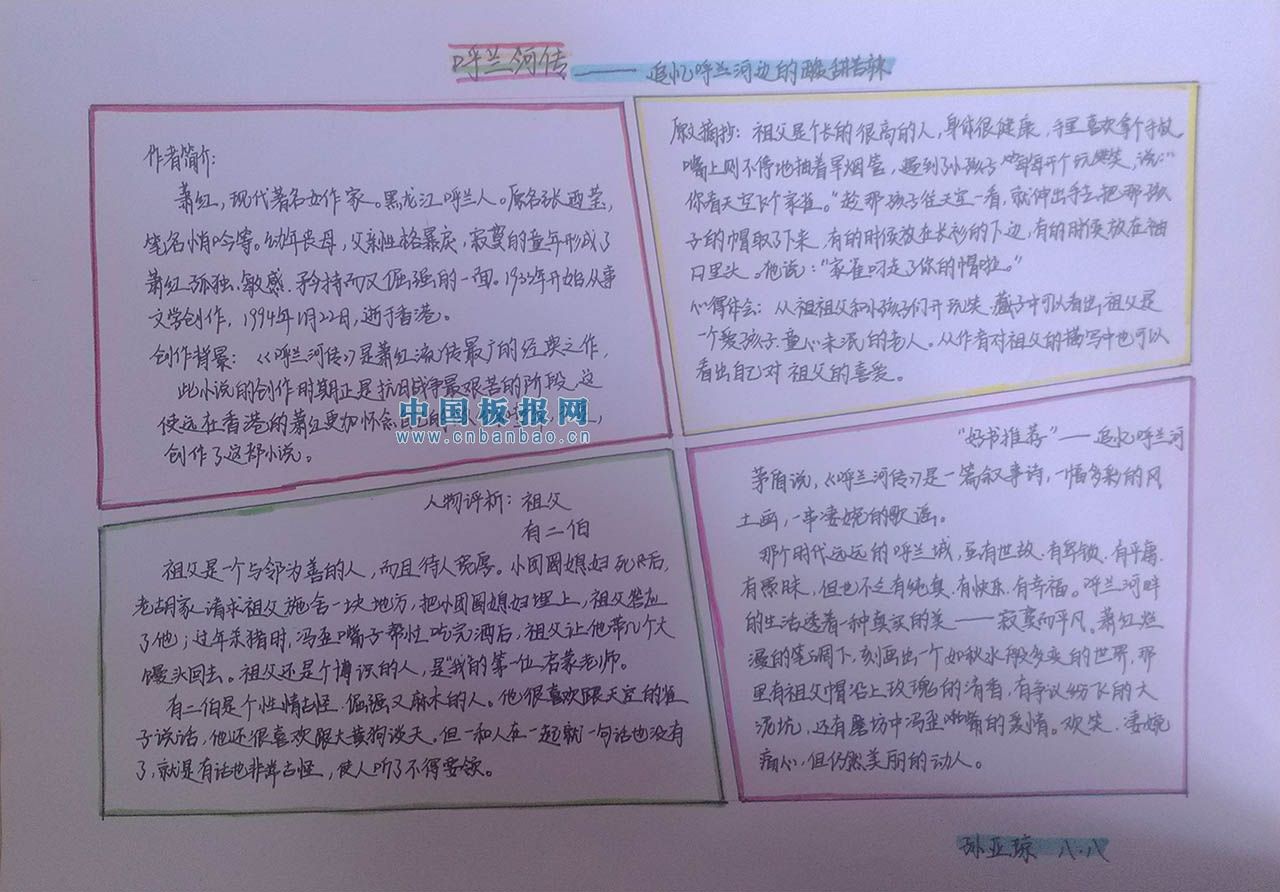 呼兰河传——追忆呼兰河边的酸甜苦辣
作者简介:
萧红,现代著名女作家。黑龙江呼兰人。原名张迺莹,
笔名悄吟等。幼年丧母,父亲性格暴戾,寂寞的童年形成了
萧红孤独、敏感、矜持而又倔强的一面。1933年开始从事
文学创作,1994年1月22日,逝于香港。
创作背景:《呼兰河传》是萧红流传最广的经典之作,
此小说的创作时期正是抗日战争最艰苦的阶段,这
使远在香港的萧红更加怀念自己的
创作了这部小说。
原文摘抄:祖父是个长的很高的人,身体很健康,手里喜欢拿个手杖,
嘴上则不停地抽着旱烟管,遇到了小孩子,每每开个玩笑,说:“
你看天空飞个家雀。”趁那孩子往天空一看,就伸出手去把那孩
子的帽取了下来,有的时候放在长衫的下边,有的时候放在袖
口里头。他说:“家雀叼走了你的帽啦。”
心得体会:从祖祖父和小孩子们开玩笑、藏子中可以看出,祖父是
一个爱孩子、童心未泯的老人。从作者对祖父的描写中也可以
看出自己对祖父的喜爱。
人物评析:祖父
有二伯
祖父是一个与邻为善的人,而且待人宽厚。小团圆媳妇死后,
老胡家请求祖父施舍一块地方,把小团圆媳妇埋上,祖父答应
了他;过年杀猪时,冯歪嘴子帮忙吃完酒后,祖父让他带几个大
馒头回去。祖父还是个博识的人,是“我”的第一位启蒙老师。
有二伯是个性情古怪、倔强又麻木的人。他很喜欢跟天空的雀
子说话,他还很喜欢跟大黄狗谈天。但一和人在一起就一句话也没有
了,就是有话也非常古怪,使人听了不得要领。
“好书推荐”——追忆呼兰河
茅盾说,《呼兰河传》是一篇叙事诗,一幅多彩的风
土画,一串凄婉的歌谣。
那个时代远远的呼兰城,虽有世故、有卑锁、有平庸、
有愚昧,但也不乏有纯真、有快乐、有幸福。呼兰河畔
的生活透着一种真实的美——寂寞而平凡。萧红烂
漫的笔调下,刻画出一个如秋水般多变的世界,那
里有祖父帽沿上玫瑰的清香,有争议纷飞的大
泥坑,还有磨坊中冯歪嘴的爱情。欢笑、凄婉
痛心,但仍然美丽的动人。
孙亚琼 八.八
中国板报网
www.cnbanbao.cn